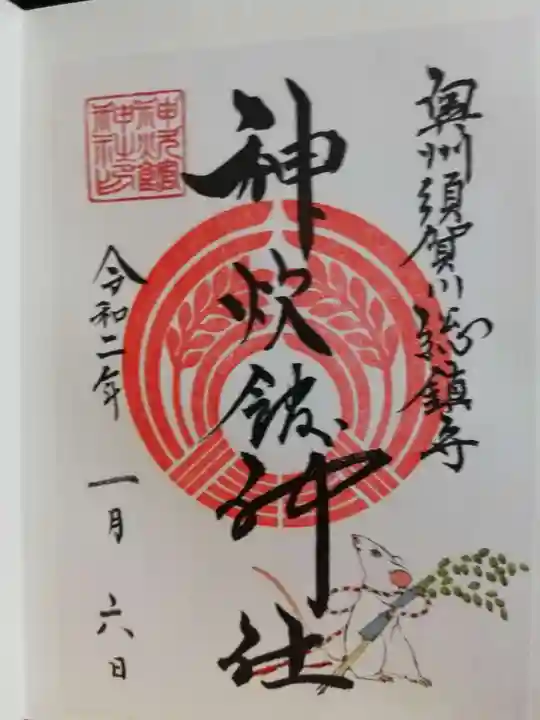 奥州須賀川総鎮守
神炊館神社
令和二年 一月 六日
神炊館神社印